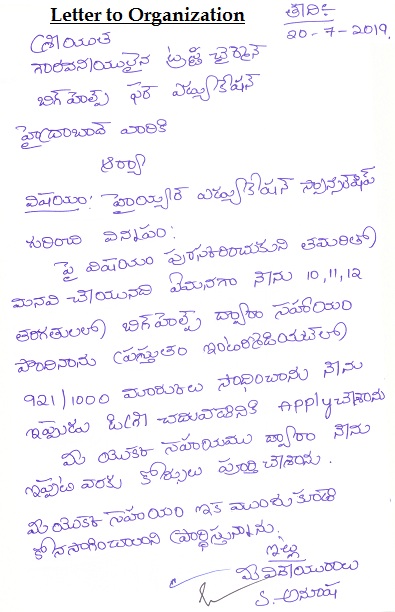 Letter to Organization
తేది:
20-7-2019.
శ్రీయుత
గౌరవనీయులైన ట్రస్ట్ చైర్మెన్
బిగ్‌హెల్ప్ ఫర్ ఎడ్యుకేషన్
హైద్రాబాద్ వారికి
ఆర్యా
విషయం: హైయ్యర్ ఎడ్యుకేషన్ స్పాన్సర్‌షిప్
గురించి విన్నపం:
పై విషయం పురస్కరించుకుని తమరితో
మనవి చేయునది ఏమనగా నేను 10,11,12
తరగతులలో బిగ్‌హెల్ప్ ద్వారా సహాయం
పొందినాను ప్రస్తుతం ఇంటర్మీడియట్‌లో
921/1000 మార్కులు సాధించాను నేను
ఇప్పుడు డిగ్రీ చదువడానికి Apply చేశాను
మీ యొక్క సహాయము ద్వారా నేను
ఇప్పటి వరకు కోర్సులు పూర్తి చేశాను.
మీయొక్క సహాయం ఇక ముందుకుకూడా
కొనసాగించాలని ప్రార్థిస్తున్నాను.
ఇట్లు
మీ విధేయురాలు
S. అనూష